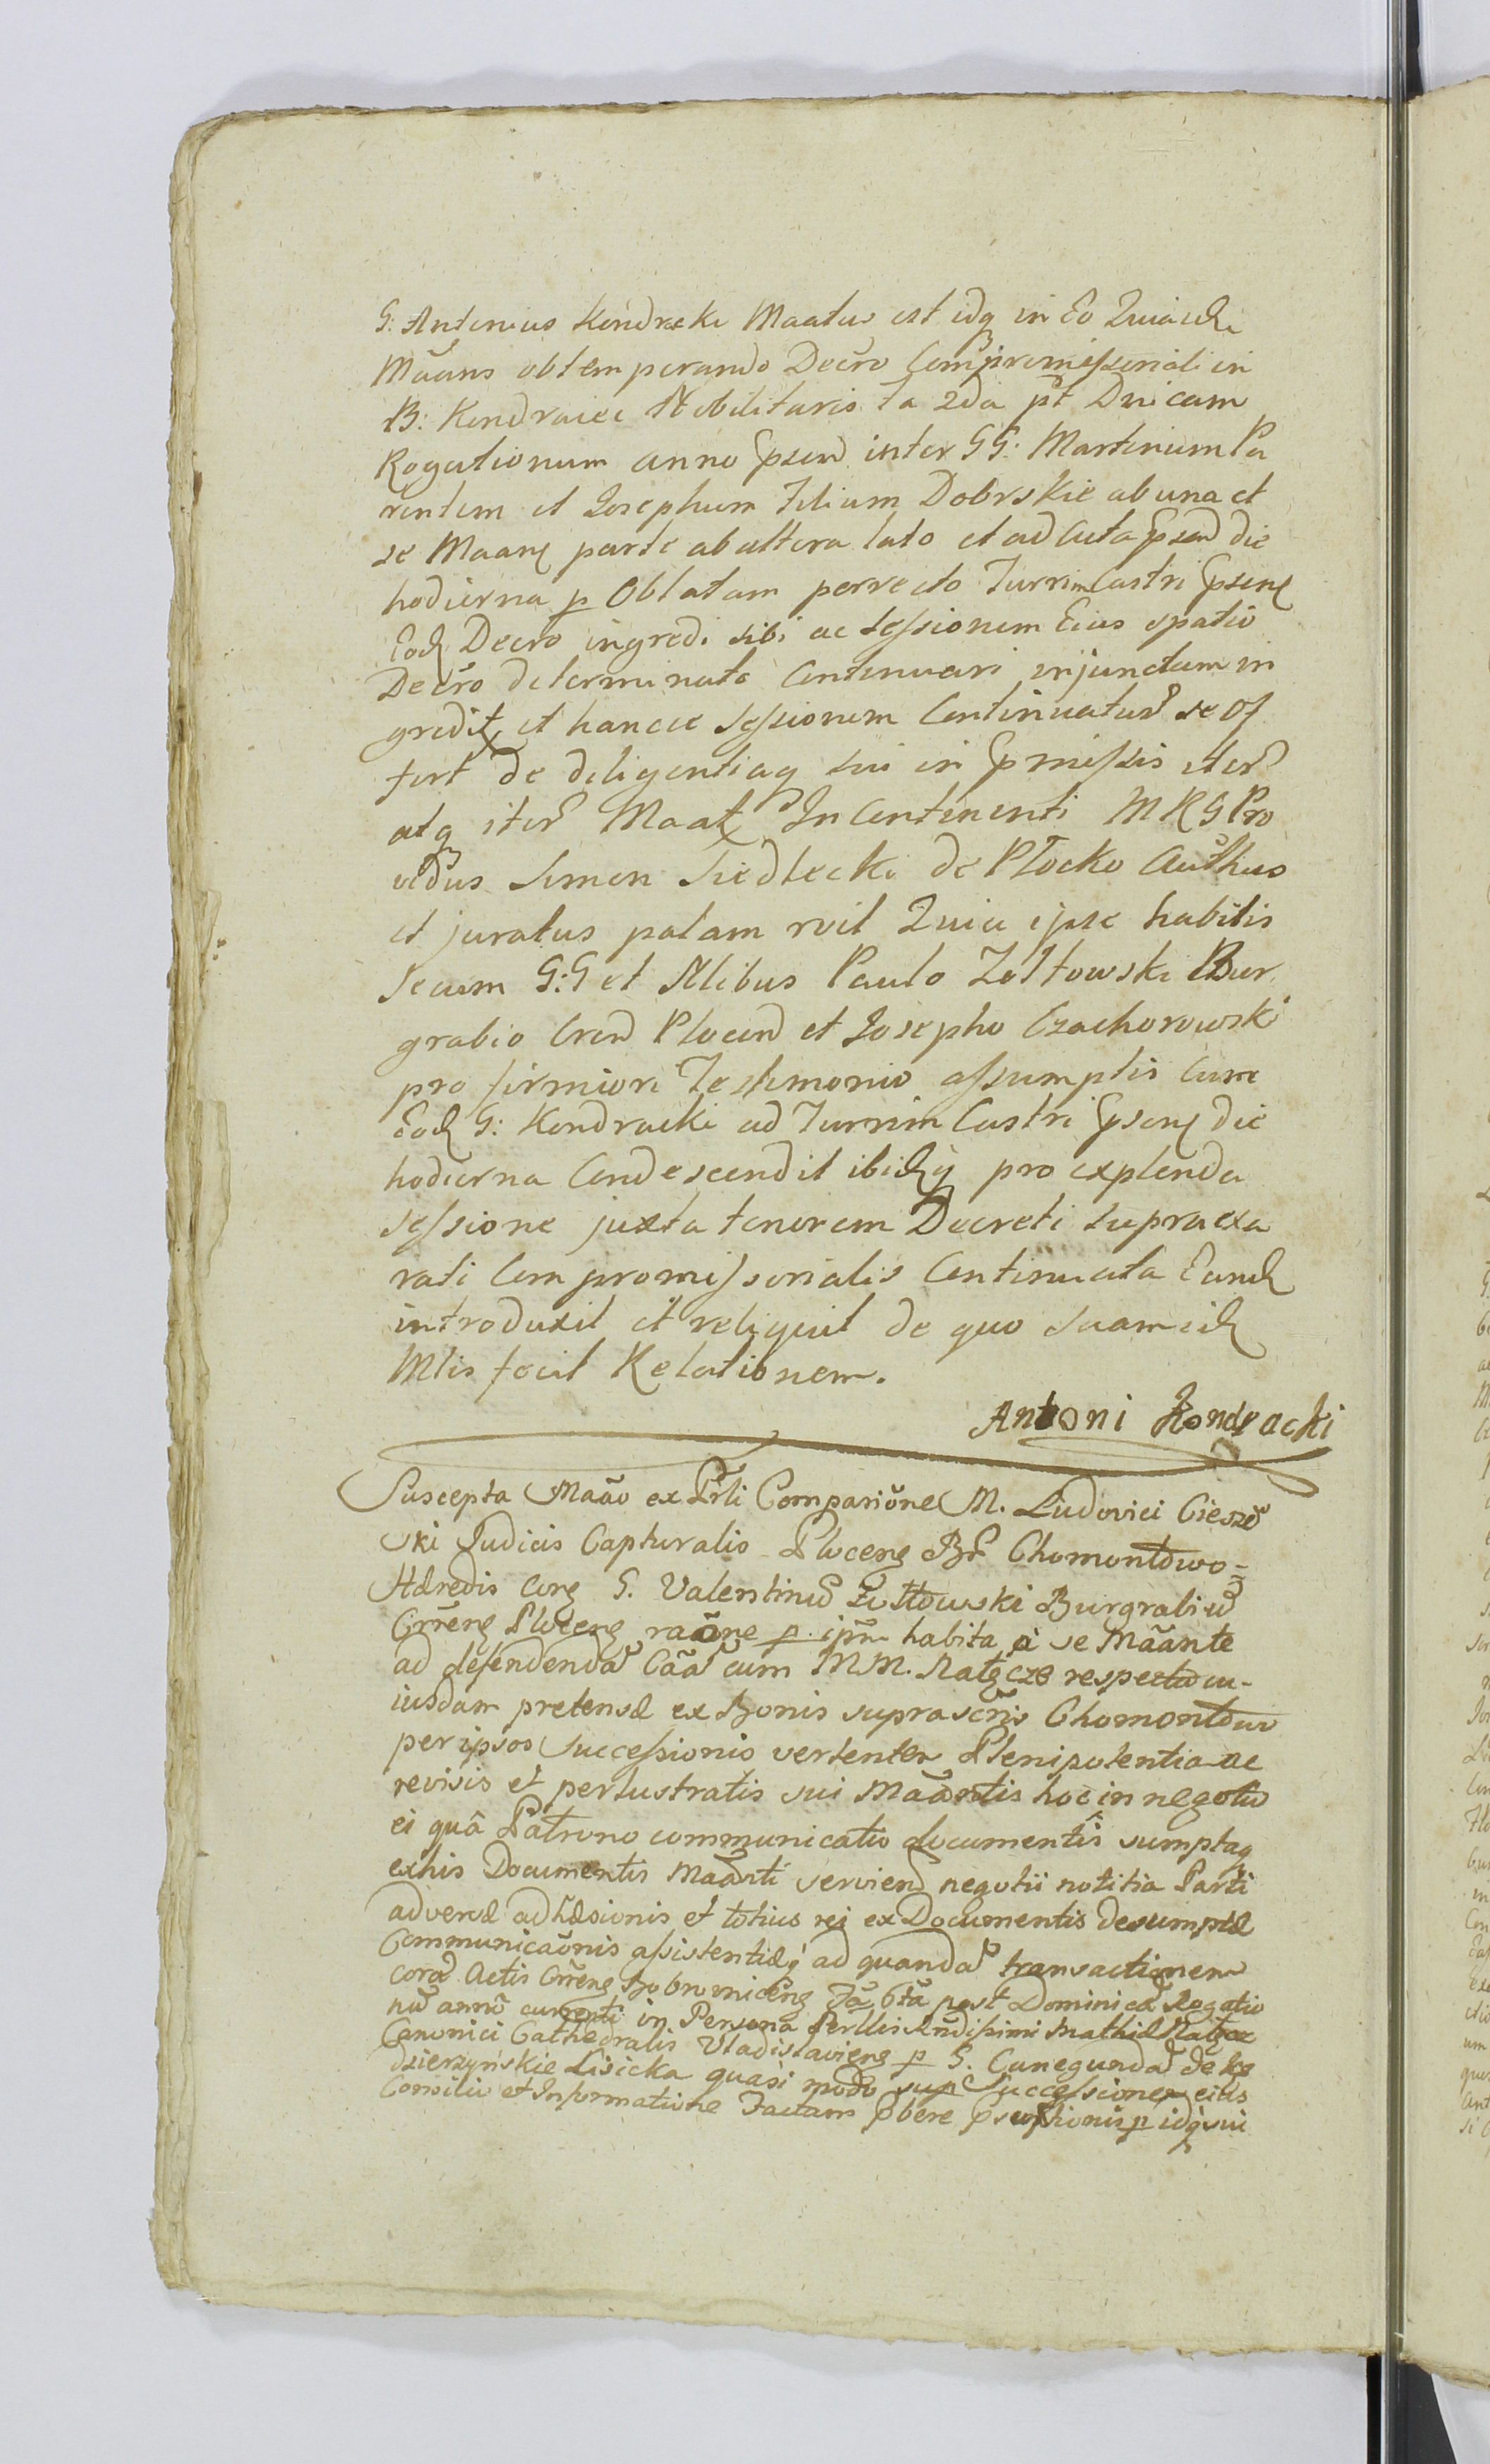 G: Antonius Kondracki Maatus est idq in Eo Quia ich
Mãans obtemperando Decro Compromissoriali in
B: Kondraiec Nobilitaris fa 2da pt Dnicam
Rogationum anno psend inter GG: Martinum Pa
rentem et Josephum Filium Dobrskie ab una et
se Maan parte ab altera lato et ad Acta psend die
hodierna p Oblatam porrecto Turrim Castri psens
Eod Decro ingredi sibi ac sessionem Eius spatio
Decro determinato Continuari injunctam in
gredit et hancce sessionem Continuatur se of
fert de diligentiaq sui in pmissis iter
atq iter Maat In Continenti MRG Pro
vidus Simon Siedlecki de Płocko Authus
et juratus palam rvit Quia ipse habitis
secum G:G et Nlibus Paulo Zołtowski Bur
grabio Cren Plocen et Josepho Czachorowski
pro firmiori Testimonio assumptis Cum
Eod G: Kondracki ad Turrim Castri psens die
hodierna Condescendit ibidq pro explenda
sessione juxta tenorem Decreti supra exa
rati Compromissorialis Continuata Eund
introduxit et reliquit de quo suam id
Mlis fecit Relationem.
Antoni Kondracki
Suscepta Maão ex Prli Comparitione M. Ludovici Cieszko
ski Judicis Capturalis Ploceng Br Chomontowo=
Hæredis Corg G. Valentinus Zołtowski Burgrabius
Crreng Ploceng raõne p ipm habita a se Mãante
ad defendendã Cãã cum MM. Natęcze respectu cu-
iusdam pretensæ ex Bonis suprascris Chomontowo
per ipsos Successionis vertenten Plenipotentia ac
revisis et perlustratis sui Maantis hoc in negotio
ei quâ Patrono communicatio documentis sumptaq
exhis Documentis Maanti serviend negotii notitia Parti
adversæ adhæsionis et totius rei ex Documentis desumptæ
Communicaõnis assistentiæq ad quandã transactionem
corã Actis Crreng Bobrowniceng Fa 6ta post Dominicã Rogatio
nũ anno currenti in Persona Perllis Rndissimi Mathiæ
Canonici Cathedralis Vladislavieng p G. Cunegundã de
dzierzynskie Lisicka quasi modo sup Successionem eius
Consilio et Informatione Factam pbere idq sui